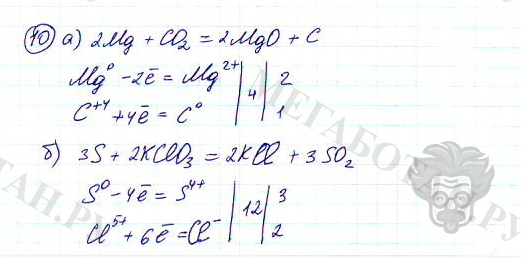 10 а) 2Mg + CO₂ = 2MgO + C
Mg⁰ - 2ē = Mg²⁺ | 4 | 2
C⁺⁴ + 4ē = C⁰ | | 1
б) 3S + 2KClO₃ = 2KCl + 3SO₂
S⁰ - 4ē = S⁴⁺ | 12 | 3
Cl⁵⁺ + 6ē = Cl⁻ | | 2
МЕГАБОТАН.РУ
ТАН.РУ